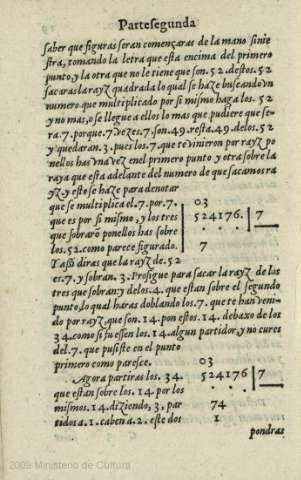 Parte segunda
saber que figuras seran començaras de la mano sinie
stra, tomando la letra que esta encima del primero
punto, y la otra que no le tiene que son. 52. destos. 52
sacaras la rayz quadrada lo qual se haze buscando vn
numero que multiplicado por si mismo haga los. 52
y no mas, o se llegue a ellos lo mas que pudiere que se
ra. 7. porque. 7 vezes. 7. son. 49. resta. 49. de los. 52
y quedaran. 3. pues los. 7. que te vinieron por rayz po
nellos has vna vez en el primero punto y otra sobre la
raya que esta adelante del numero de que sacamos ra
yz. y esto se haze para denotar
que se multiplica el. 7. por. 7.
que es por si mismo, y los tres
que sobrarō ponellos has sobre
los. 52. como parece figurado.
03
524176. | 7
. . .
7
Y assi diras que la rayz de. 52
es. 7. y sobran. 3. Prosigue para sacar la rayz de los
tres que sobran y de los. 4. que estan sobre el segundo
punto, lo qual haras doblando los. 7. que te han veni
do por rayz, que son. 14. pon estos. 14. debaxo de los
34. como si fuessen los. 14. algun partidor, y no cures
del. 7. que pusiste en el punto
primero como paresce.
Agora partiras los. 34.
que estan sobre los. 14 por los
mismos. 14. diziendo, 3. par
tidos a. 1. caben a. 2. este dos
03
524176. | 7
. . .
74
1
pondras
2009 Ministerio de Cultura